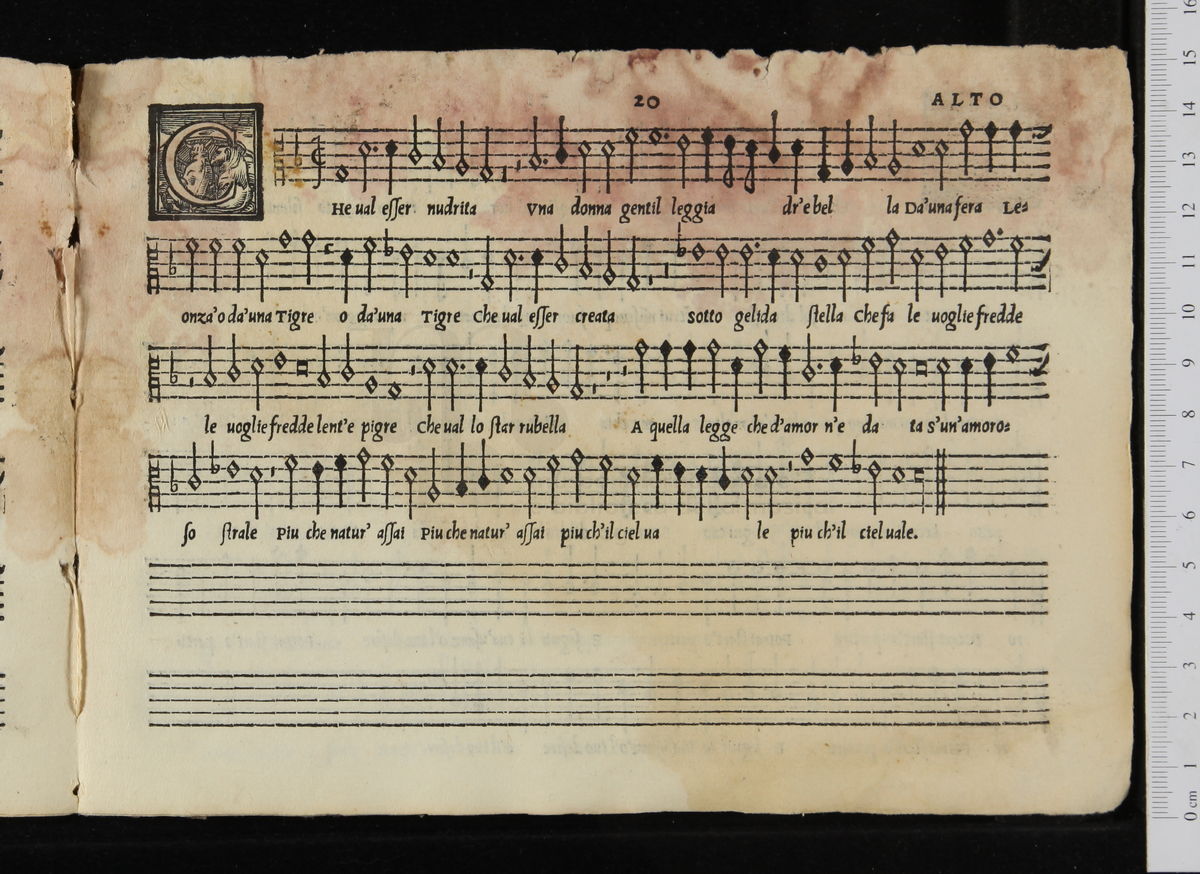 20 ALTO
CHe ual esser nudrita Vna donna gentil leggia dr'e bel la Da'una fera Le=
onza'o da'una Tigre o da'una Tigre Che ual esser creata sotto gelida stella Che fa le uoglie fredde
le uoglie fredde lent'e pigre Che ual lo star rubella A quella legge che d'amor n'e da ta s'un'amoro=
so strale Piu che natur' assai Piu che natur' assai piu ch'il ciel ua le piu ch'il ciel uale.
16
15
14
13
12
11
10
9
8
7
6
5
4
3
2
1
0 cm